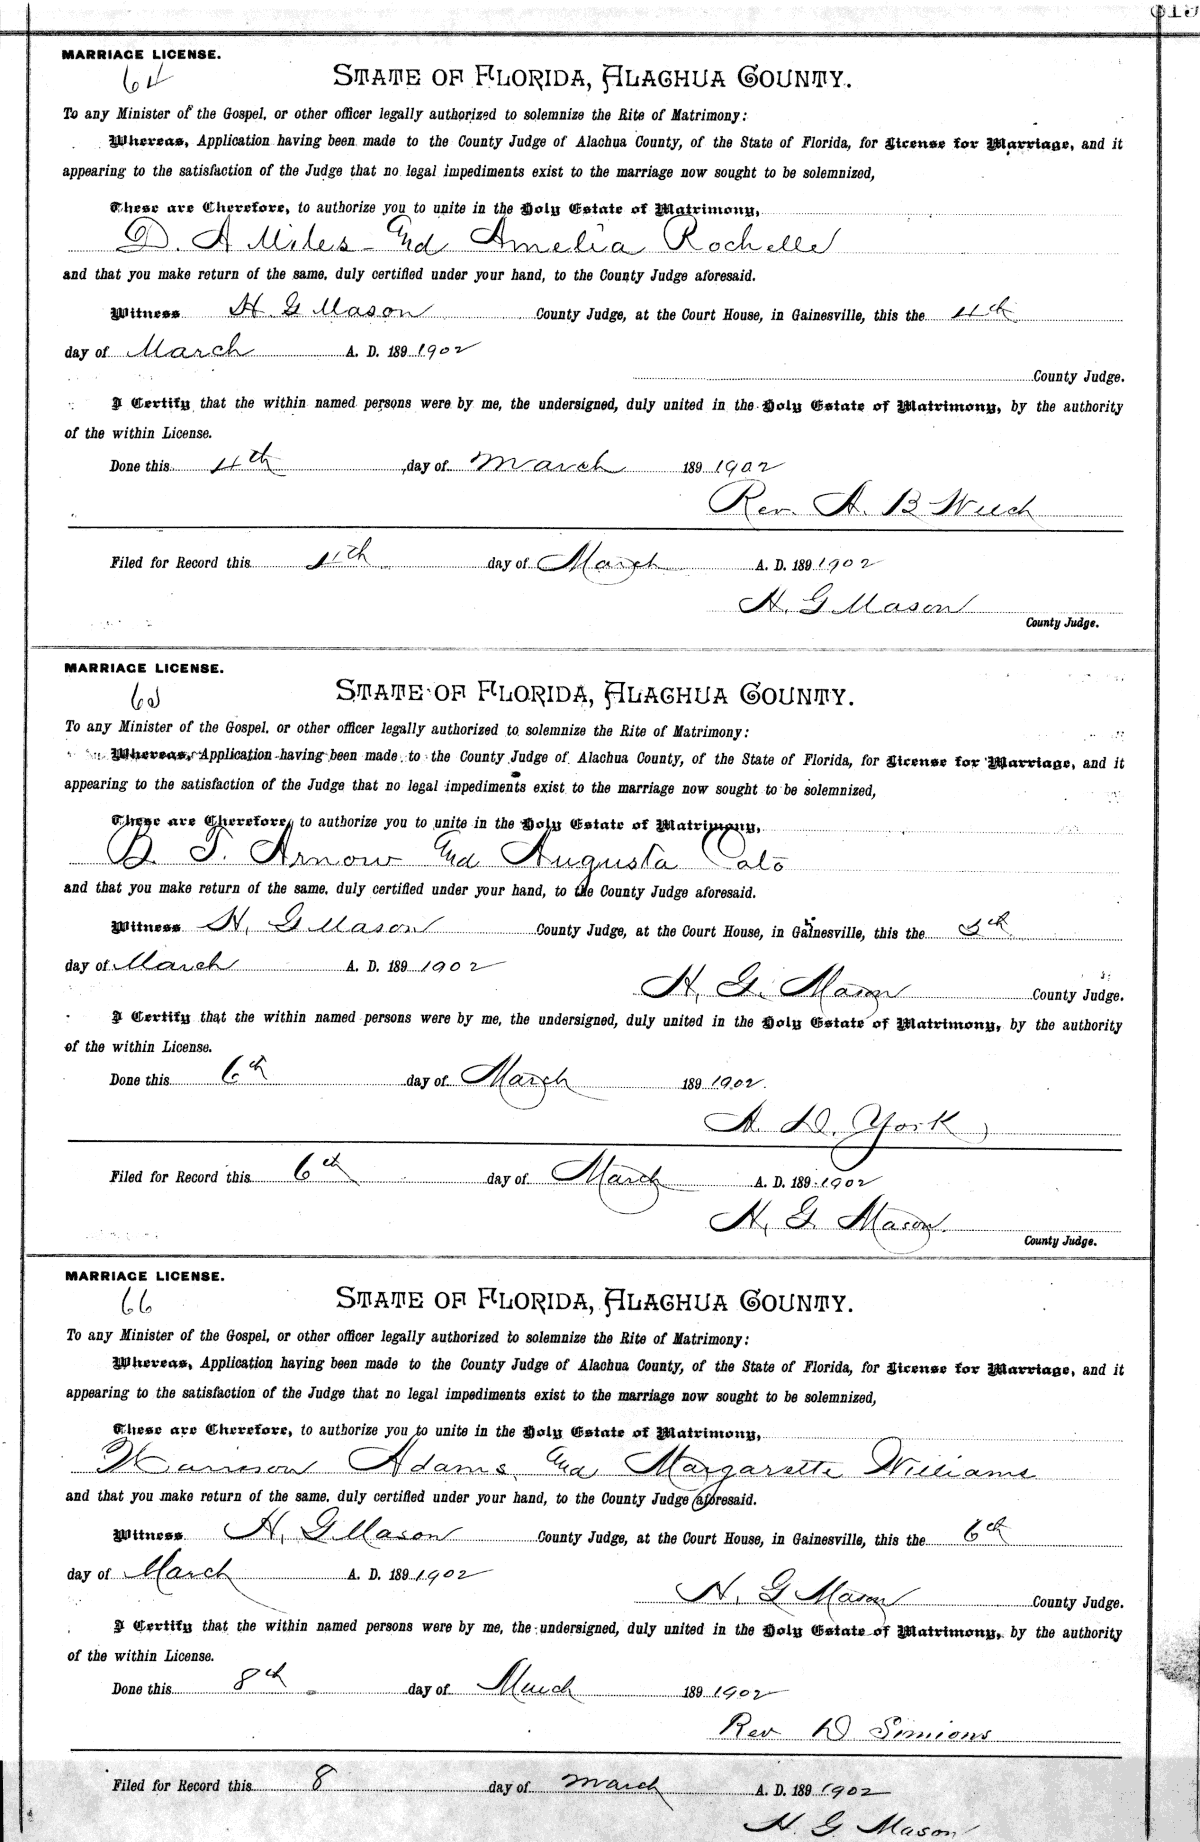 MARRIAGE LICENSE.
64
STATE OF FLORIDA, ALACHUA COUNTY.
To any Minister of the Gospel, or other officer legally authorized to solemnize the Rite of Matrimony:
Whereas, Application having been made to the County Judge of Alachua County, of the State of Florida, for License for Marriage, and it
appearing to the satisfaction of the Judge that no legal impediments exist to the marriage now sought to be solemnized,
These are Therefore, to authorize you to unite in the Holy Estate of Matrimony,
D. A Miles and Amelia Rochelle
and that you make return of the same, duly certified under your hand, to the County Judge aforesaid.
Witness H. G Mason County Judge, at the Court House, in Gainesville, this the 4th
day of March A. D. 189 1902
County Judge.
I Certify that the within named persons were by me, the undersigned, duly united in the Holy Estate of Matrimony, by the authority
of the within License.
Done this 4th day of March 189 1902
Rev. A. B Weech
Filed for Record this 4th day of March A. D. 189 1902
H. G Mason
County Judge.
MARRIAGE LICENSE.
65
STATE OF FLORIDA, ALACHUA COUNTY.
To any Minister of the Gospel, or other officer legally authorized to solemnize the Rite of Matrimony:
Whereas, Application having been made to the County Judge of Alachua County, of the State of Florida, for License for Marriage, and it
appearing to the satisfaction of the Judge that no legal impediments exist to the marriage now sought to be solemnized,
These are Therefore, to authorize you to unite in the Holy Estate of Matrimony,
B. T. Arnow and Augusta Cato
and that you make return of the same, duly certified under your hand, to the County Judge aforesaid.
Witness H. G Mason County Judge, at the Court House, in Gainesville, this the 5th
day of March A. D. 189 1902
H. G. Mason County Judge.
I Certify that the within named persons were by me, the undersigned, duly united in the Holy Estate of Matrimony, by the authority
of the within License.
Done this 6th day of March 189 1902.
A. D. York
Filed for Record this 6th day of March A. D. 189 1902
H. G. Mason.
County Judge.
MARRIAGE LICENSE.
66
STATE OF FLORIDA, ALACHUA COUNTY.
To any Minister of the Gospel, or other officer legally authorized to solemnize the Rite of Matrimony:
Whereas, Application having been made to the County Judge of Alachua County, of the State of Florida, for License for Marriage, and it
appearing to the satisfaction of the Judge that no legal impediments exist to the marriage now sought to be solemnized,
These are Therefore, to authorize you to unite in the Holy Estate of Matrimony,
Harrison Adams, and Margarette Williams
and that you make return of the same, duly certified under your hand, to the County Judge aforesaid.
Witness H. G Mason County Judge, at the Court House, in Gainesville, this the 6th
day of March A. D. 189 1902
H. G Mason County Judge.
I Certify that the within named persons were by me, the undersigned, duly united in the Holy Estate of Matrimony, by the authority
of the within License.
Done this 8th day of March 189 1902
Rev D Simions
Filed for Record this 8 day of March A. D. 189 1902
H. G. Mason